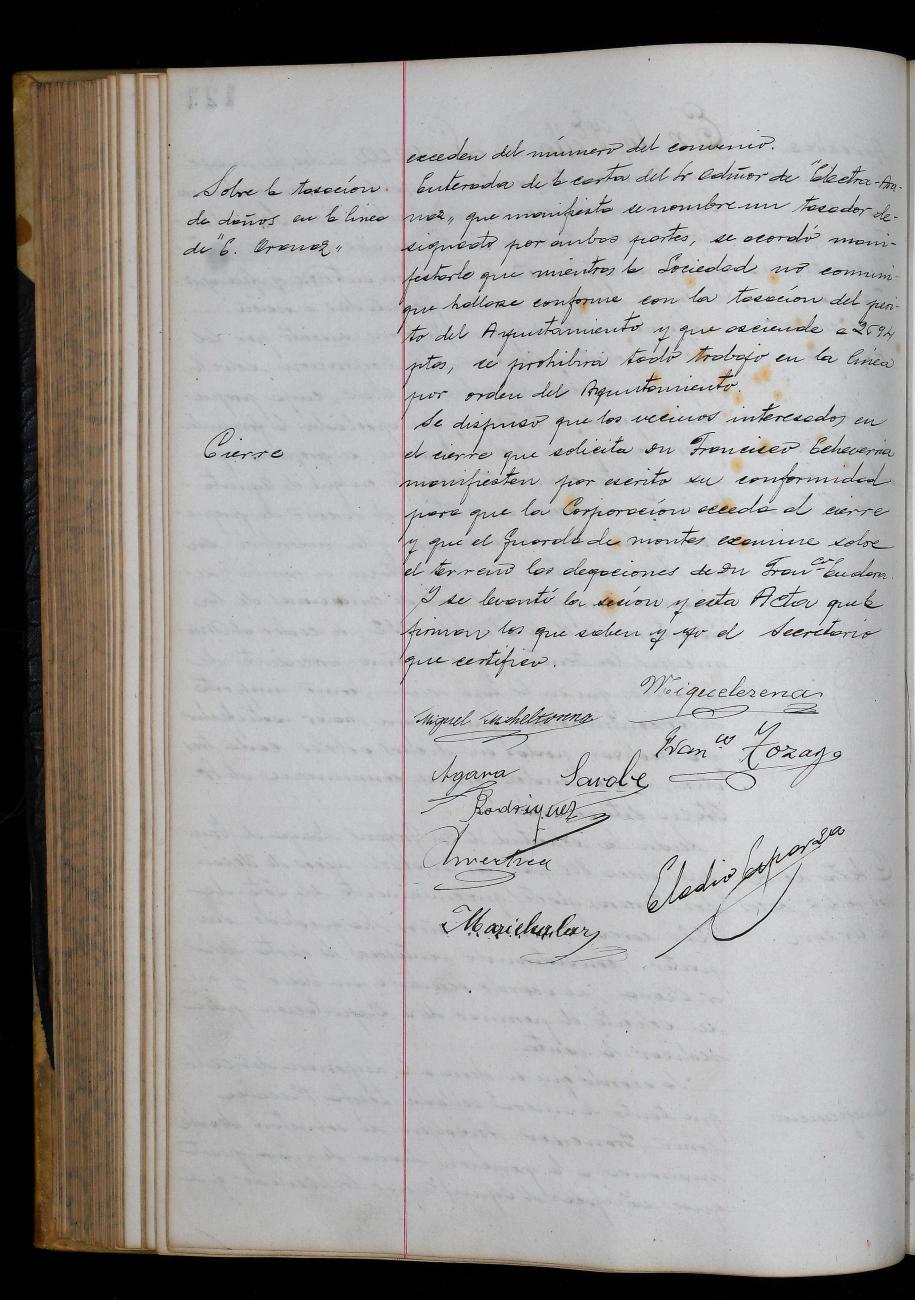 exceden del número del convenio.
Sobre la tasación
de daños en la linea
de "E. Aranaz"
Enterada de la carta del Sr Admor de "Electra-Ara-
naz", que manifiesta se nombre un tasador de-
signado por ambas partes, se acordó mani-
festarle que mientras la Sociedad no comuni-
que hallarse conforme con la tasación del peri-
to del Ayuntamiento y que asciende a 2594
ptas, se prohibirá todo trabajo en la linea
por orden del Ayuntamiento.
Cierre
Se dispuso que los vecinos interesados en
el cierre que solicita Dn Francisco Echeverria
manifiesten por escrito su conformidad
para que la Corporación acceda al cierre
y que el Guarda de montes examine sobre
el terreno las alegaciones de Dn Franco
Y se levantó la sesión y esta Acta que la
firman los que saben y yo el Secretario
que certifico.
Miquelerena
Miguel Micheltorena
Franco Yozaya
Agara Sarobe
Rodriguez
Eladio Esparza
Marichalar